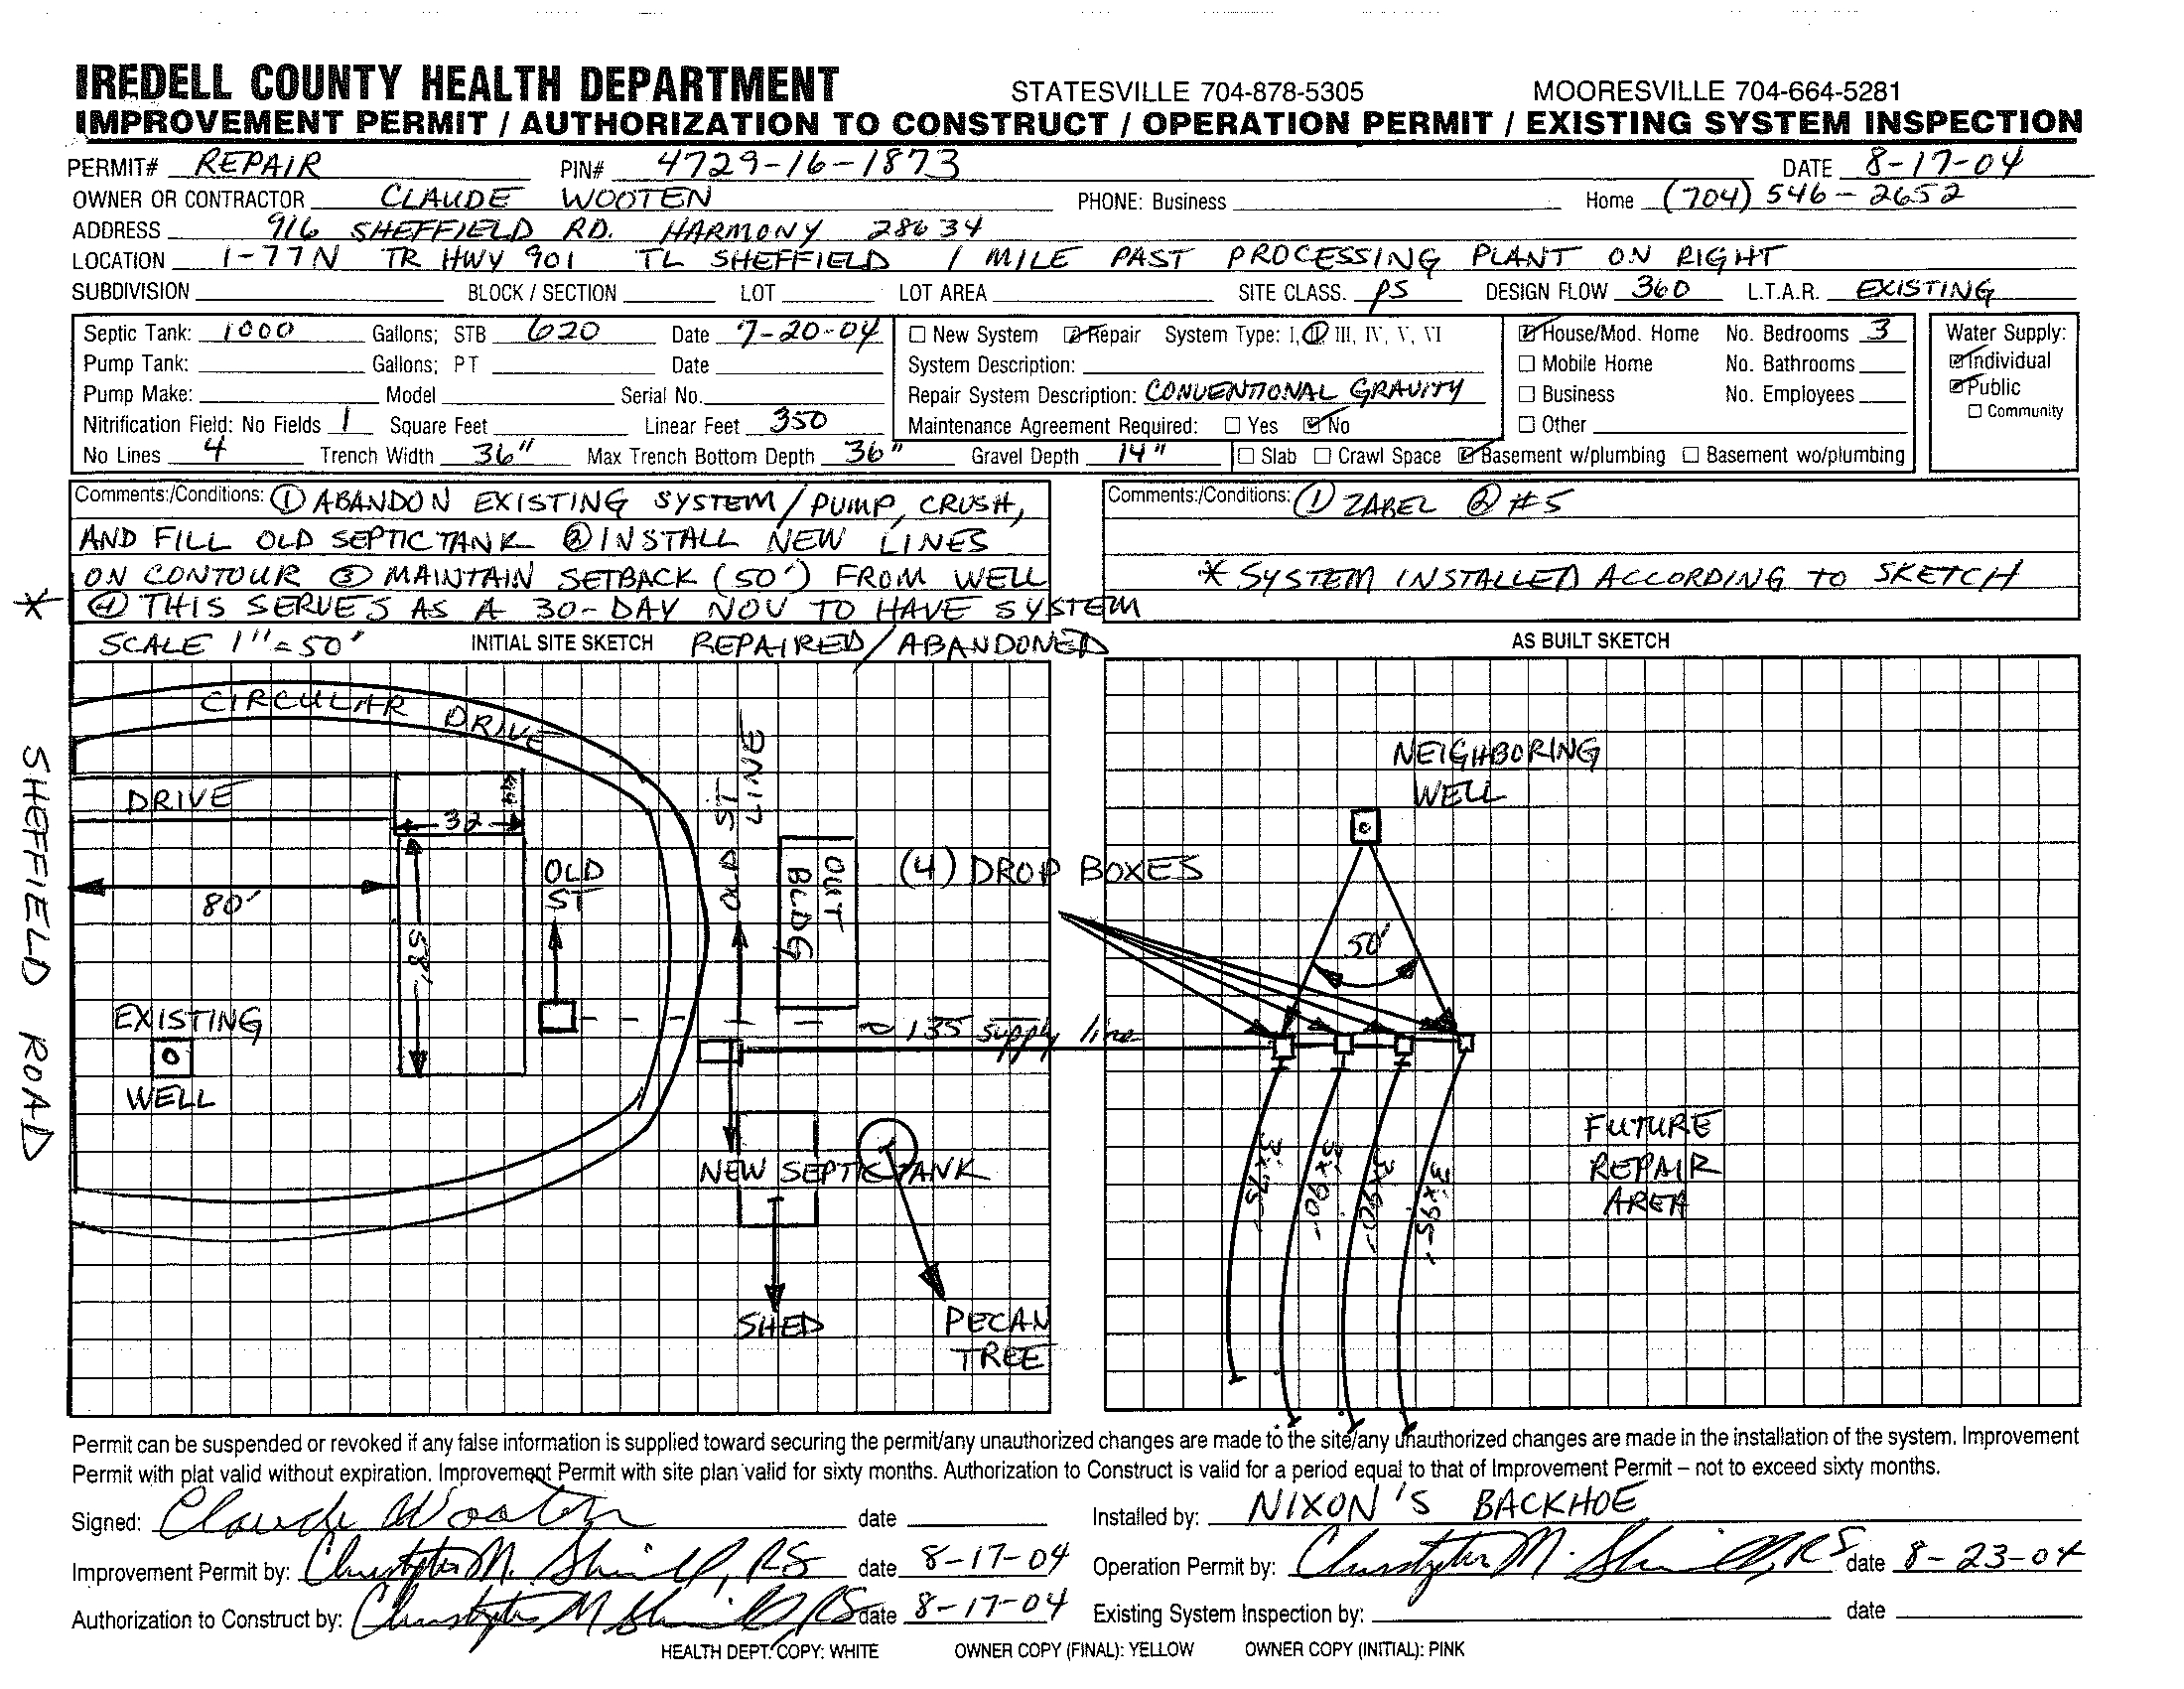 IREDELL COUNTY HEALTH DEPARTMENT STATESVILLE 704-878-5305 MOORESVILLE 704-664-5281
IMPROVEMENT PERMIT / AUTHORIZATION TO CONSTRUCT / OPERATION PERMIT / EXISTING SYSTEM INSPECTION
PERMIT# REPAIR PIN# 4729-16-1873 DATE 8-17-04
OWNER OR CONTRACTOR CLAUDE WOOTEN PHONE: Business Home (704) 546-2652
ADDRESS 916 SHEFFIELD RD. HARMONY 28634
LOCATION I-77N TR HWY 901 TL SHEFFIELD 1 MILE PAST PROCESSING PLANT ON RIGHT
SUBDIVISION BLOCK / SECTION LOT LOT AREA SITE CLASS. PS DESIGN FLOW 360 L.T.A.R. EXISTING
Septic Tank: 1000 Gallons; STB 620 Date 7-20-04
Pump Tank: Gallons; PT Date
Pump Make: Model Serial No.
Nitrification Field: No Fields 1 Square Feet Linear Feet 350
No Lines 4 Trench Width 36" Max Trench Bottom Depth 36" Gravel Depth 14"
☐ New System ☑ Repair System Type: I, II, III, IV, V, VI
System Description:
Repair System Description: CONVENTIONAL GRAVITY
Maintenance Agreement Required: ☐ Yes ☑ No
☑ House/Mod. Home No. Bedrooms 3
☐ Mobile Home No. Bathrooms
☐ Business No. Employees
☐ Other
☐ Slab ☐ Crawl Space ☑ Basement w/plumbing ☐ Basement wo/plumbing
Water Supply:
☑ Individual
☑ Public
☐ Community
Comments:/Conditions: ① ABANDON EXISTING SYSTEM/PUMP, CRUSH,
AND FILL OLD SEPTIC TANK ② INSTALL NEW LINES
ON CONTOUR ③ MAINTAIN SETBACK (50') FROM WELL
* ④ THIS SERVES AS A 30-DAY NOV TO HAVE SYSTEM
REPAIRED/ABANDONED
Comments:/Conditions: ① ZABEL ② #5
* SYSTEM INSTALLED ACCORDING TO SKETCH
SCALE 1"=50' INITIAL SITE SKETCH
AS BUILT SKETCH
CIRCULAR DRIVE
DRIVE
32
80'
58'
SHEFFIELD ROAD
EXISTING
WELL
OLD
ST
OLD ST
LINE
OUT
BLDG
(4) DROP BOXES
~ 135 supply line
NEW SEPTIC TANK
SHED
PECAN
TREE
NEIGHBORING
WELL
50'
3'x75'
3'x90'
3'x90'
3'x95'
FUTURE
REPAIR
AREA
Permit can be suspended or revoked if any false information is supplied toward securing the permit/any unauthorized changes are made to the site/any unauthorized changes are made in the installation of the system. Improvement
Permit with plat valid without expiration. Improvement Permit with site plan valid for sixty months. Authorization to Construct is valid for a period equal to that of Improvement Permit – not to exceed sixty months.
Signed: Claude Wooten date
Installed by: NIXON'S BACKHOE
Improvement Permit by: Christopher M. RS date 8-17-04
Operation Permit by: Christopher M. RS date 8-23-04
Authorization to Construct by: Christopher M RS date 8-17-04
Existing System Inspection by: date
HEALTH DEPT. COPY: WHITE OWNER COPY (FINAL): YELLOW OWNER COPY (INITIAL): PINK